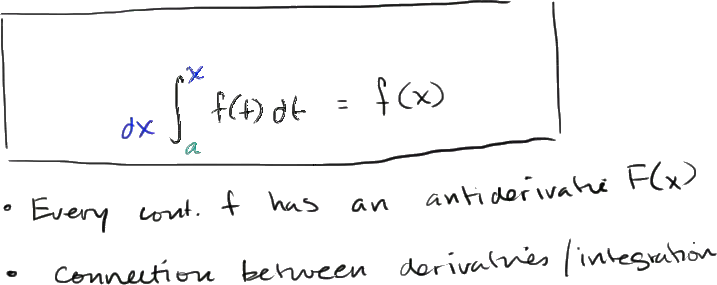 dx ∫ₐˣ f(t) dt = f(x)
• Every cont. f has an antiderivative F(x)
• Connection between derivatives / integration